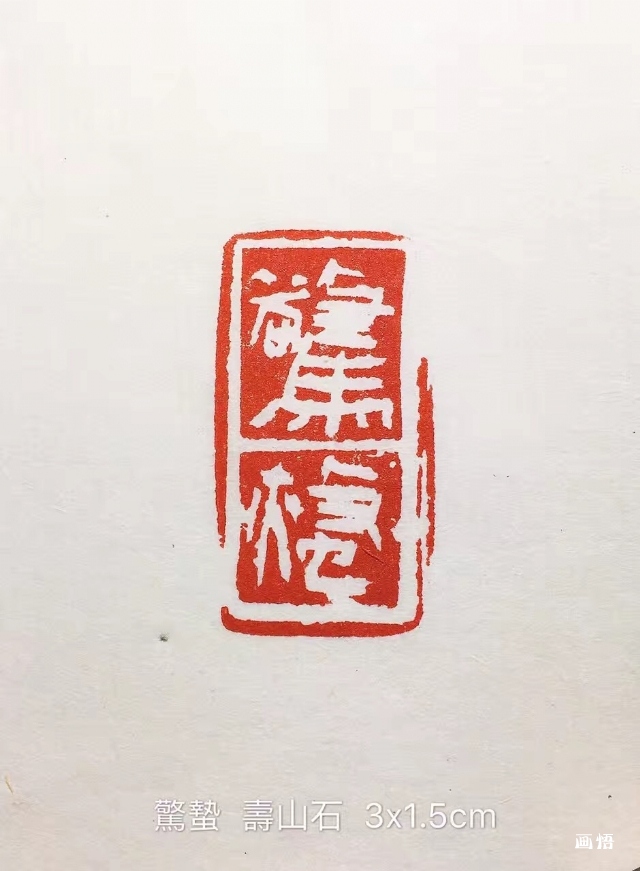 驚
蟄
驚蟄 壽山石 3x1.5cm
画悟